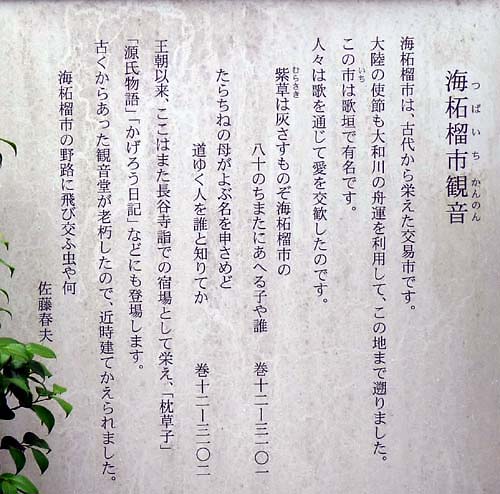 海柘榴市観音
つばいち かんのん
海柘榴市は、古代から栄えた交易市です。
大陸の使節も大和川の舟運を利用して、この地まで遡りました。
この市は歌垣で有名です。
いち
人々は歌を通じて愛を交歓したのです。
紫草は灰さすものぞ海柘榴市の
むらさき
八十のちまたにあへる子や誰 巻十二ー三一〇一
たらちねの母がよぶ名を申さめど
道ゆく人を誰と知りてか 巻十二ー三一〇二
王朝以来、ここはまた長谷寺詣での宿場として栄え、「枕草子」
「源氏物語」「かげろう日記」などにも登場します。
古くからあった観音堂が老朽したので、近時建てかえられました。
海柘榴市の野路に飛び交ふ虫や何
佐藤春夫